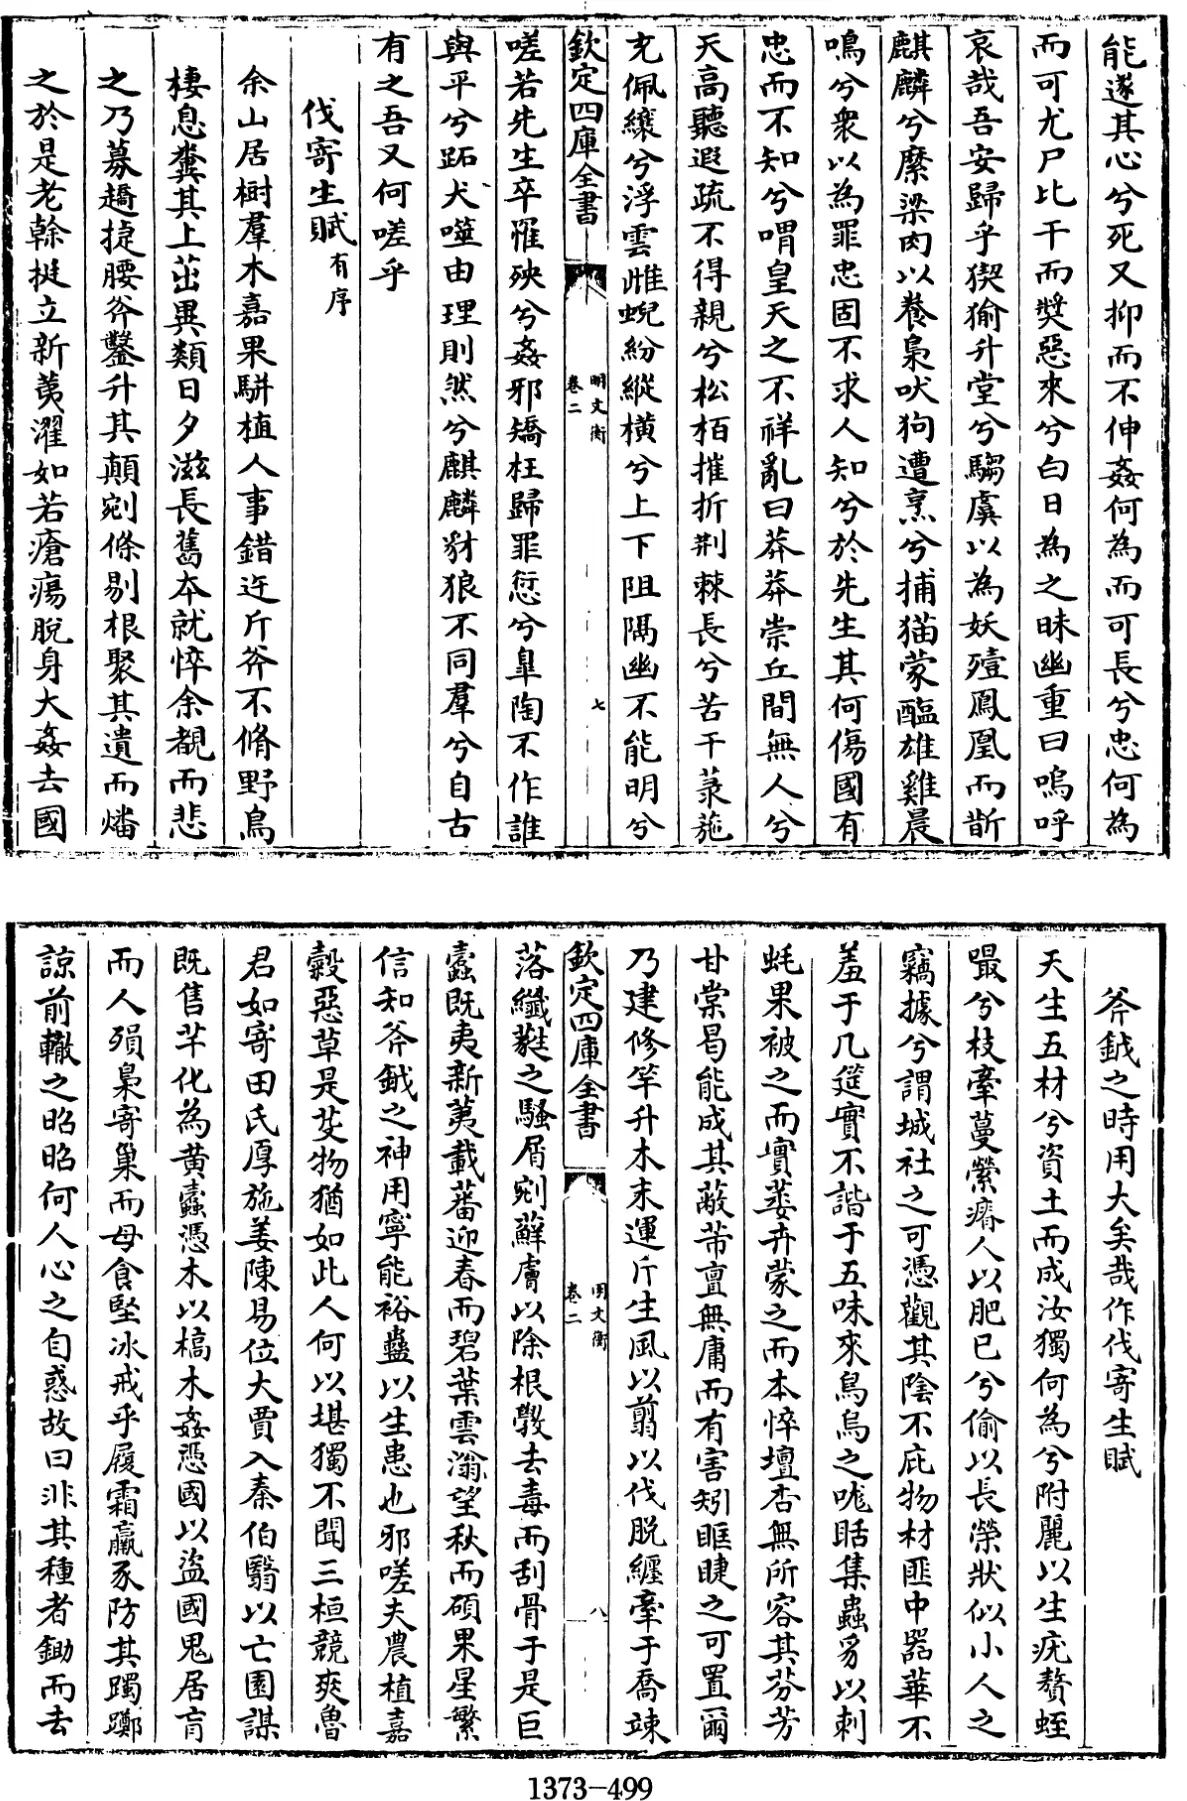 能遂其心兮死又抑而不伸姦何為而可長兮忠何為
而可尤尸比干而奬惡來兮白日為之昧幽重曰嗚呼
哀哉吾安歸乎猰㺄升堂兮騶虞以為妖殪鳳凰而斮
麒麟兮縻粱肉以養梟吠狗遭烹兮捕猫蒙醢雄雞晨
鳴兮衆以為罪忠固不求人知兮於先生其何傷國有
忠而不知兮喟皇天之不祥亂曰莽莽崇丘間無人兮
天高聽遐疏不得親兮松栢摧折荆棘長兮苦干菉葹
充佩纕兮浮雲雌蜺紛縱橫兮上下阻隅幽不能明兮
欽定四庫全書
明文衡
卷二
七
嗟若先生卒罹殃兮姦邪矯枉歸罪愆兮臯陶不作誰
與平兮跖犬噬由理則然兮麒麟豺狼不同羣兮自古
有之吾又何嗟乎
伐寄生賦有序
余山居樹羣木嘉果駢植人事錯迕斤斧不脩野鳥
棲息糞其上茁異類日夕滋長舊本就悴余覩而悲
之乃募趫捷腰斧鑿升其顛剜條剔根聚其遺而燔
之於是老榦挺立新荑濯如若瘡瘍脫身大姦去國
斧鉞之時用大矣哉作伐寄生賦
天生五材兮資土而成汝獨何為兮附麗以生疣贅蛭
嘬兮枝牽蔓縈瘠人以肥已兮偷以長榮狀似小人之
竊據兮謂城社之可憑觀其陰不庇物材匪中器華不
羞于几筵實不諧于五味來鳥烏之咙聒集蟲豸以刺
蚝果被之而實萎卉蒙之而本悴壇杏無所容其芬芳
甘棠曷能成其蔽芾亶無庸而有害矧睚睫之可置爾
乃建修竿升木末運斤生風以翦以伐脫纏牽于喬竦
欽定四庫全書
明文衡
卷二
八
落纖蕤之騷屑剜蘚膚以除根㲉去毒而刮骨于是巨
蠹既夷新荑載蕃迎春而碧葉雲滃望秋而碩果星繁
信知斧鉞之神用寧能裕蠱以生患也邪嗟夫農植嘉
穀惡草是芟物猶如此人何以堪獨不聞三桓競爽魯
君如寄田氏厚施姜陳易位大賈入秦伯翳以亡園謀
既售芊化為黄蠹憑木以槁木姦憑國以盜國鬼居肓
而人殞梟寄巢而母食堅冰戒乎履霜羸豕防其蹢躅
諒前轍之昭昭何人心之自惑故曰非其種者鋤而去
1373-499